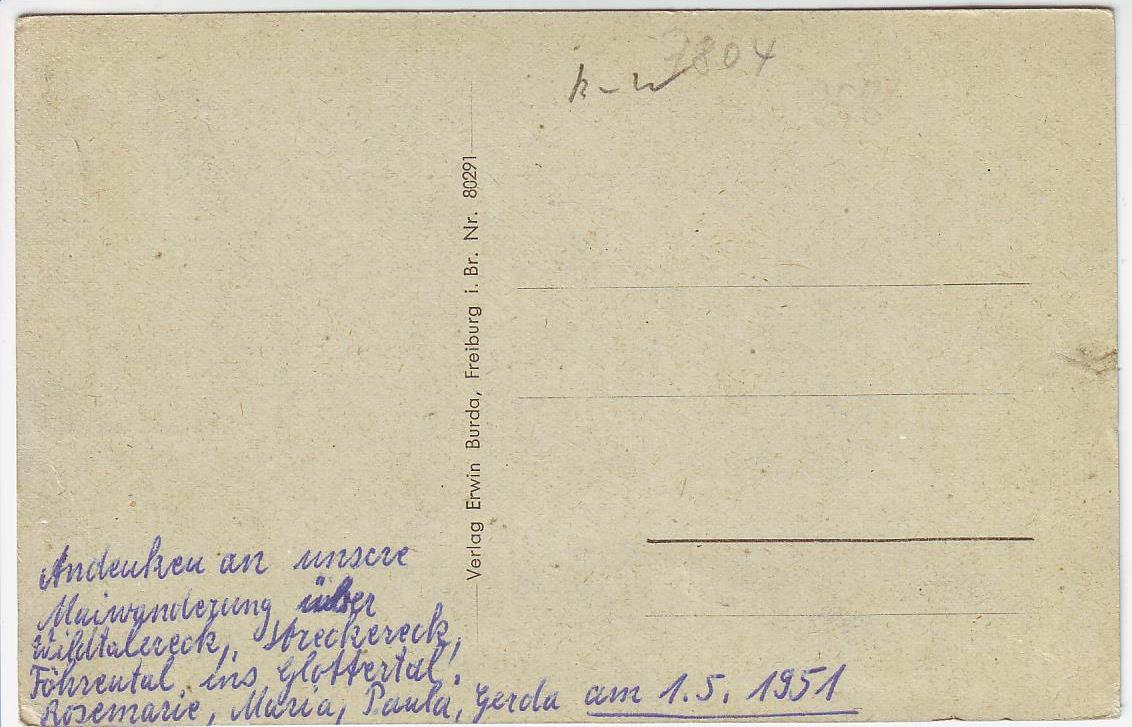 7804
Verlag Erwin Burda, Freiburg i. Br. Nr. 80291
Andenken an unsere
Maiwanderung über
Wildtalereck, Streckereck,
Föhrental, ins Glottertal!
Rosemarie, Maria, Paula, Gerda am 1.5.1951